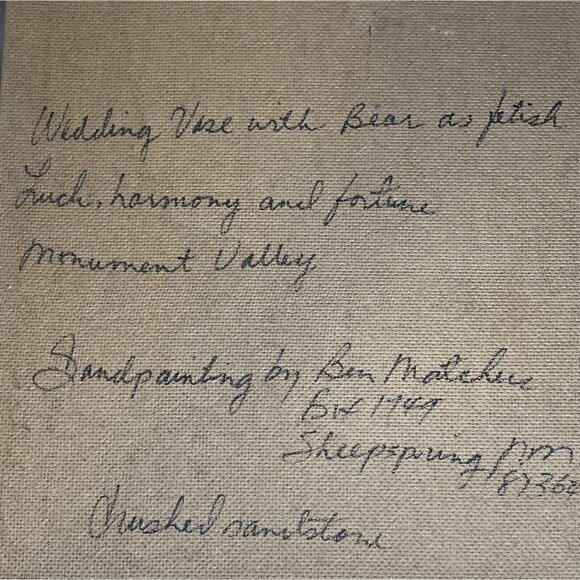 Wedding Vase with Bear as fetish
Luck, harmony and fortune
Monument Valley
Sandpainting by Ben
Bx 1749
Sheepspring, NM
87364
Crushed sandstone